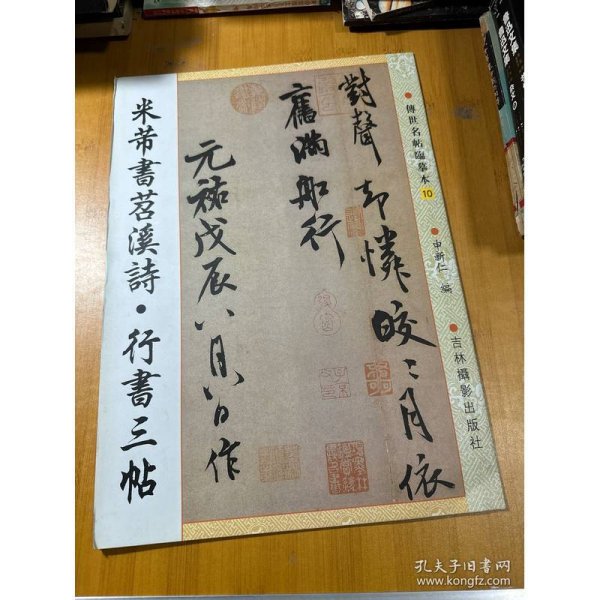 傳世名帖臨摹本 10
申新仁 編
吉林攝影出版社
對聲却憐皎〻月依
舊滿船行
元祐戊辰八月八日作
米芾書苕溪詩·行書三帖
孔夫子旧书网
www.kongfz.com